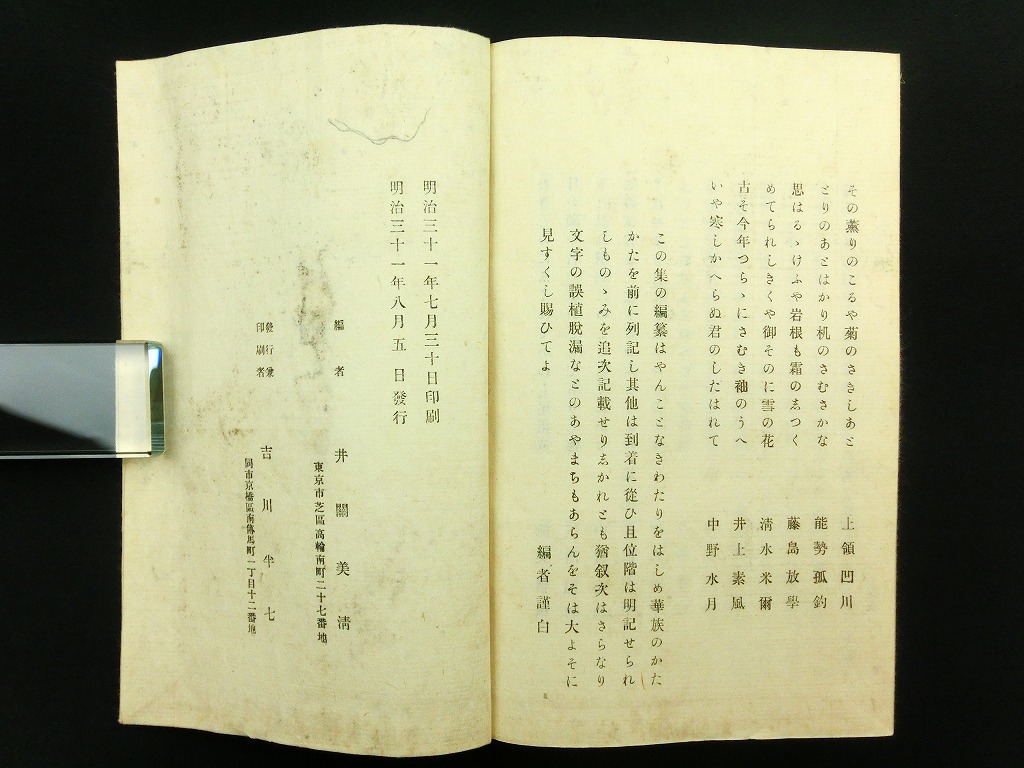 その薫りのこるや菊のさきしあと　上領凹川
とりのあとはかり机のさむさかな　能勢孤釣
思はるゝけふや岩根も霜の志つく　藤島放學
めてられしきくや御そのに雪の花　清水米爾
古そ今年つらゝにさむき袖のうへ　井上素風
いや寒しかへらぬ君のしたはれて　中野水月
この集の編纂はやんことなきわたりをはしめ華族のかた
かたを前に列記し其他は到着に從ひ且位階は明記せられ
しものゝみを追次記載せり志かれとも猶叙次はさらなり
文字の誤植脱漏なとのあやまちもあらんをそは大よそに
見すくし賜ひてよ
編者謹白
明治三十一年七月三十日印刷
明治三十一年八月五日發行
編者　井關美清
東京市芝區高輪南町二十七番地
發行兼印刷者　吉川半七
同市京橋區南傳馬町一丁目十二番地